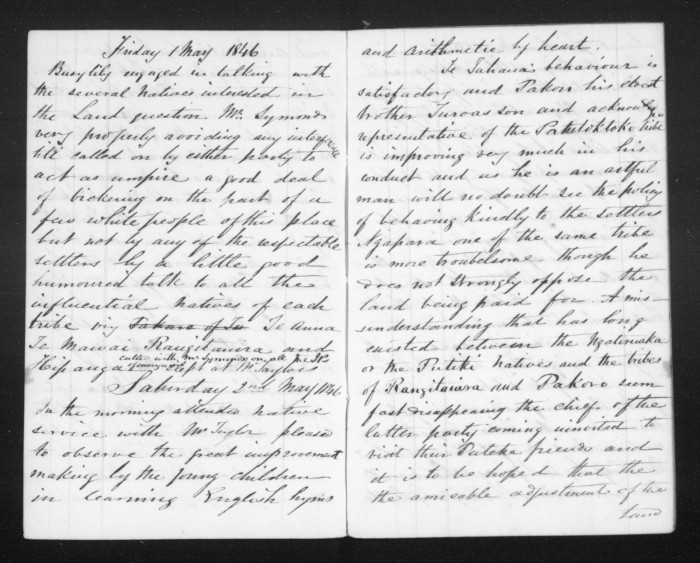 Friday 1 May 1846
Busylily engaged in talking with
the several Natives interested in
the Land question Mr. Symonds
very properly avoiding any interference
till called on by either party to
act as umpire a good deal
of bickering on the part of a
few white people of this place
but not by any of the respectable
settlers by a little good
humoured talk to all the
influential natives of each
tribe viz Te Anaua
Te Mawai Rangitauira and
Hipango called with Mr Symonds on all the
slept at Mr Taylors
Saturday 2nd May 1846
In the morning attended native
service with Mr Taylor pleased
to observe the great improvement
making by the young children
in learning English hyms
and arithmetic by heart.
Te Tahana's behaviour is
satisfactory and Pakoro his eldest
brother Turoas son and acknowledged
representative of the Patutokotoko tribe
is improving very much in his
conduct and as he is an artful
man will no doubt see the policy
of behaving kindly to the settlers
Ngapara one of the same tribe
is more troublesome though he
does not strongly oppose the
land being paid for A mis-
understanding that has long
existed between the
or the Putiki Natives and the tribes
of Rangitauira and Pakoro seem
fast disappearing the chiefs of the
latter party coming uninvited to
visit their friends and
it is to be hoped that the
the amicable adjustment of the